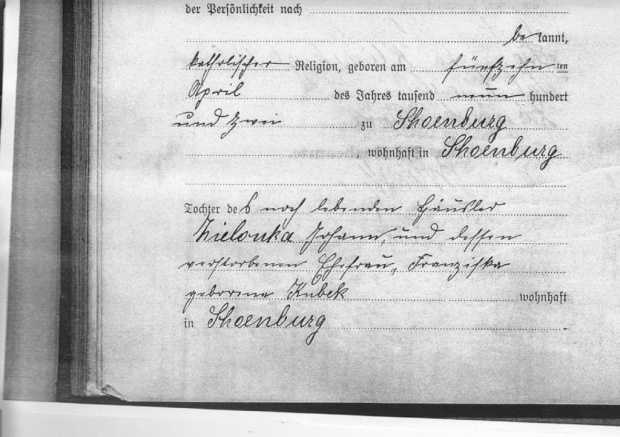 der Persönlichkeit nach
be kannt,
katholischer Religion, geboren am fünfzehn ten
April des Jahres tausend neun hundert
und zwei zu Schoenburg
, wohnhaft in Schoenburg
Tochter des noch lebenden Häusler
Zielonka Johann, und dessen
verstorbenen Ehefrau, Franziska
geborene Kubek wohnhaft
in Schoenburg